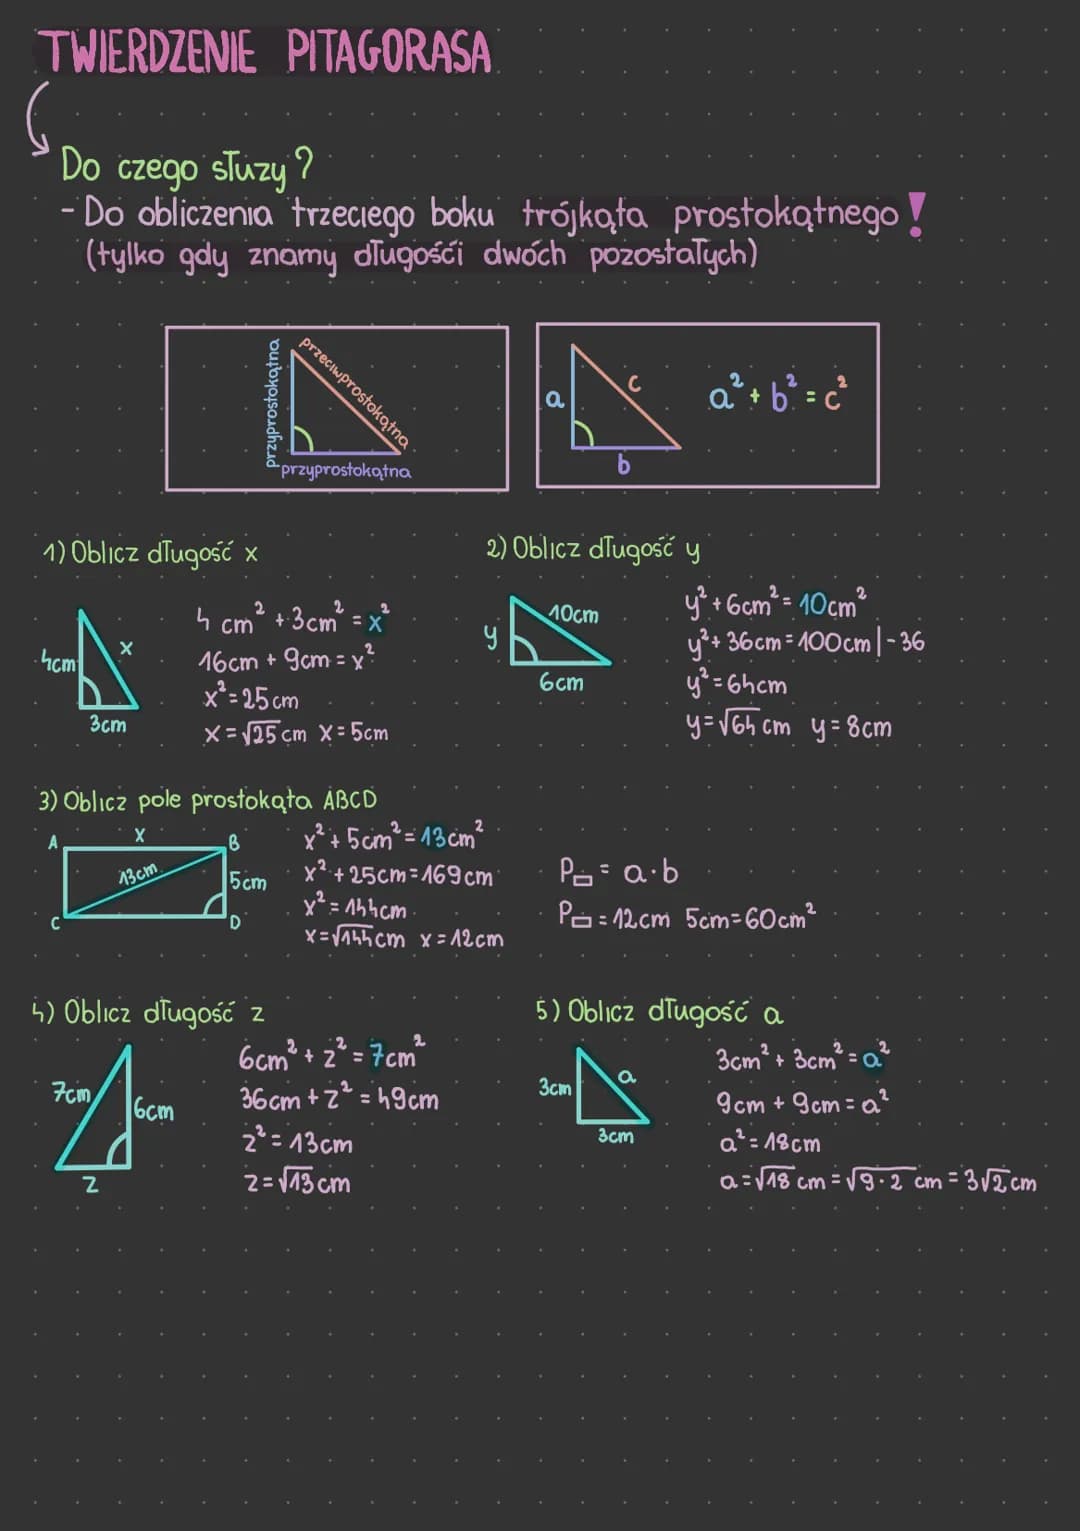 TWIERDZENIE PITAGORASA
Do czego służy?
- Do obliczenia trzeciego boku trójkąta prostokątnego!
(tylko gdy znamy długośći dwóch pozostałych)
przyprostokątna
przeciwprostokątna
przyprostokątna
a
c
b
a² + b² = c²
1) Oblicz długość x
4cm
x
3cm
4 cm² + 3cm² = x²
16cm + 9cm = x²
x² = 25cm
x = √25 cm x = 5cm
2) Oblicz długość y
y
10cm
6cm
y² + 6cm² = 10cm²
y² + 36cm = 100cm | - 36
y² = 64cm
y = √64 cm y = 8cm
3) Oblicz pole prostokąta ABCD
A
x
B
13cm
5cm
C
D
x² + 5cm² = 13cm²
x² + 25cm = 169cm
x² = 144cm
x = √144cm x = 12cm
P▭ = a · b
P▭ = 12cm 5cm = 60cm²
4) Oblicz długość z
7cm
6cm
z
6cm² + z² = 7cm²
36cm + z² = 49cm
z² = 13cm
z = √13 cm
5) Oblicz długość a
3cm
a
3cm
3cm² + 3cm² = a²
9cm + 9cm = a²
a² = 18cm
a = √18 cm = √9·2 cm = 3√2 cm